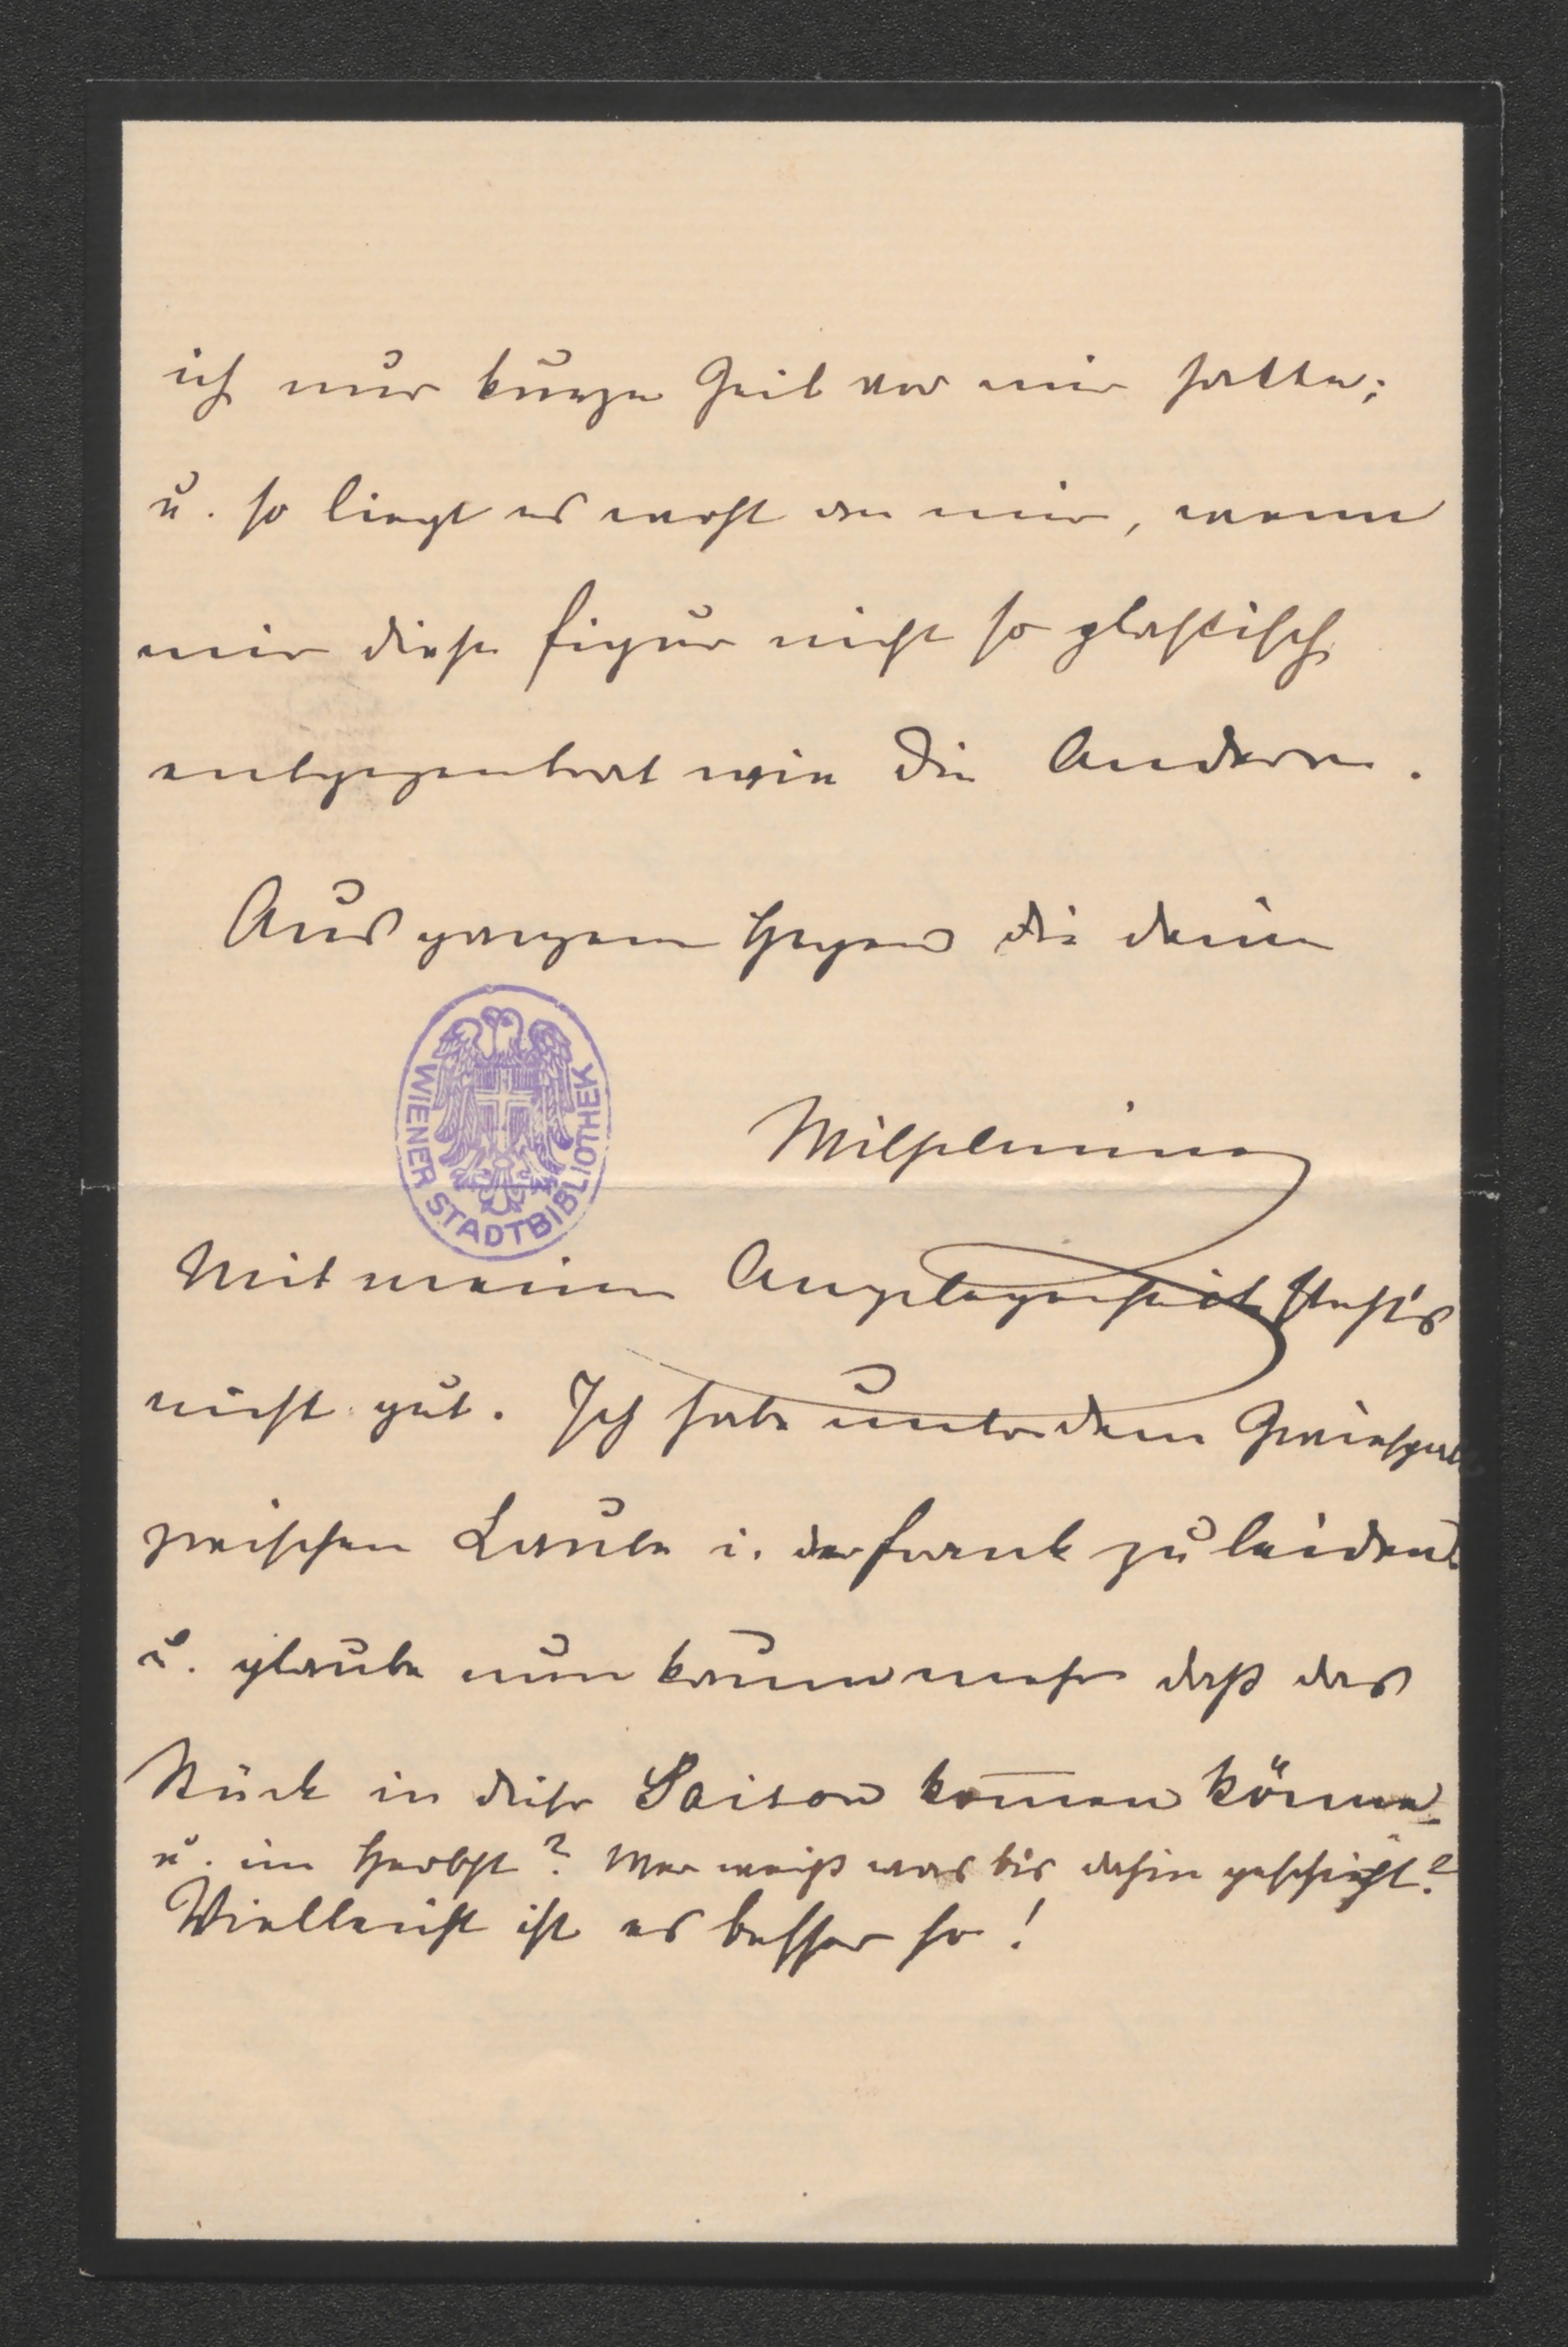 ich nur kurze Zeit vor mir hatte;
u. so liegt es wohl an mir, wenn
mir diese Figur nicht so plastisch
entgegentrat wie die Andern.
Aus ganzem Herzen die deine
WIENER STADTBIBLIOTHEK
Mit meiner Angelegenheit steht's
nicht gut. Ich habe unter dem Zwiespalt
zwischen Laube u. der Frank zu leiden
u. glaube nun kaum mehr daß das
Stück in dieser Saison kom̅en könne
u. im Herbst? Wer weiß was bis dahin geschieht?
Vielleicht ist es besser so!